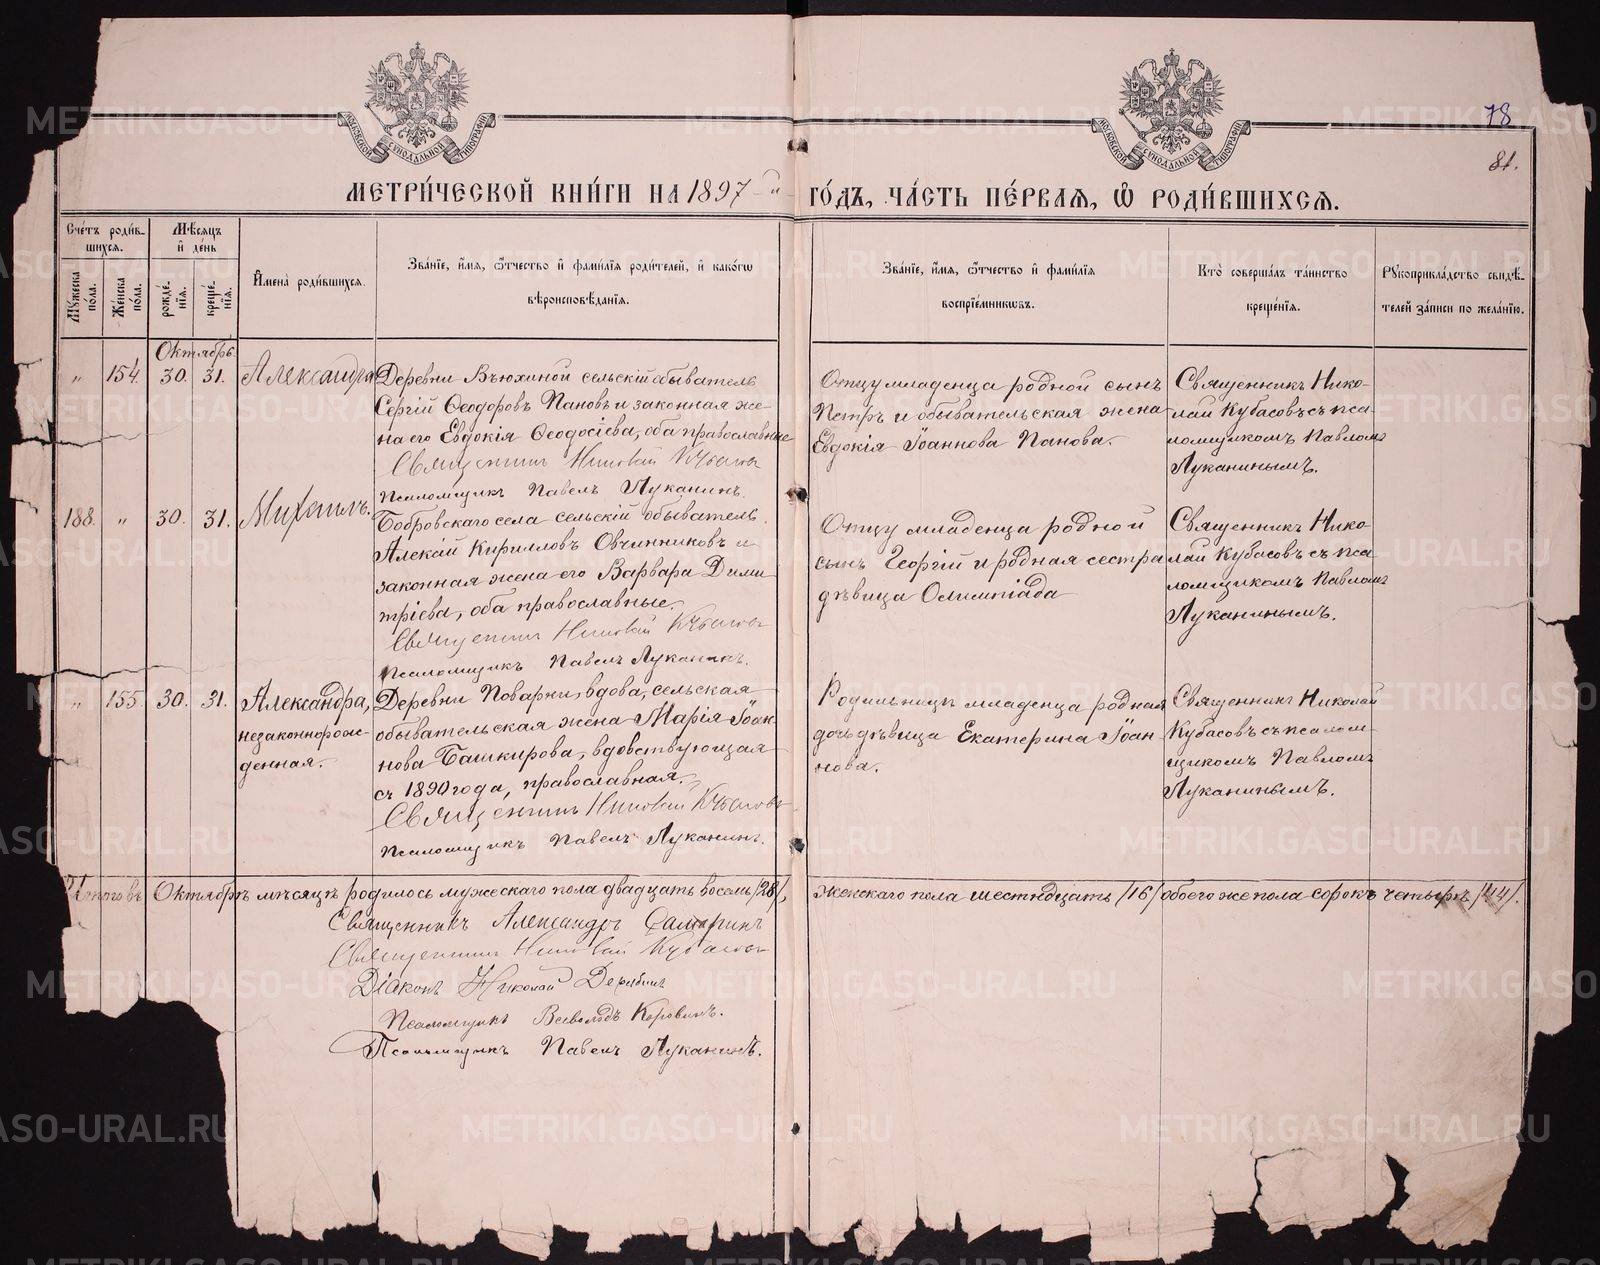 78
81.
МОСКОВСКОЙ СѴНОДАЛЬНОЙ ТИПОГРАФІИ
МОСКОВСКОЙ СѴНОДАЛЬНОЙ ТИПОГРАФІИ
МЕТРИ́ЧЕСКОЙ КНИ́ГИ НА 1897-й ГО́ДЪ, ЧА́СТЬ ПЕ́РВАѦ, Ѡ҆ РОДИ́ВШИХСѦ.
Сче́тъ роди́в-
шихсѧ.
Мѣ́сѧцъ
и҆ де́нь
Му́жеска
по́ла.
Же́нска
по́ла.
рожде́-
нїѧ.
креще́-
нїѧ.
И҆мена̀ роди́вшихсѧ.
Зва́нїе, и҆́мѧ, ѻ҆́тчество и҆ фами́лїѧ роди́телей, и҆ како́гѡ
вѣроисповѣ́данїѧ.
Зва́нїе, и҆́мѧ, ѻ҆́тчество и҆ фами́лїѧ
воспрїе́мникѡвъ.
Кто̀ соверша́лъ та́инство
креще́нїѧ.
Рꙋкоприкла́дство свидѣ́-
телей за́писи по жела́нїю.
Октябрь.
" 154. 30. 31. Александра
Деревни Вьюхиной сельскій обыватель
Сергій Ѳеодоровъ Пановъ и законная же-
на его Евдокія Ѳеодосіева, оба православные
Священникъ Николай Кубасовъ
Псаломщикъ Павелъ Луканинъ.
Отцу младенца родной сынъ
Петръ и обывательская жена
Евдокія Іоаннова Панова.
Священникъ Нико-
лай Кубасовъ съ пса-
ломщикомъ Павломъ
Луканинымъ.
188. " 30. 31. Михаилъ.
Бобровскаго села сельскій обыватель
Алексій Кирилловъ Овчинниковъ и
законная жена его Варвара Дими-
тріева, оба православные.
Священникъ Николай Кубасовъ
Псаломщикъ Павелъ Луканинъ.
Отцу младенца родной
сынъ Георгій и родная сестра
дѣвица Олимпіада
Священникъ Нико-
лай Кубасовъ съ пса-
ломщикомъ Павломъ
Луканинымъ.
" 155. 30. 31. Александра,
незаконнорож-
денная.
Деревни Поварни, вдова, сельская
обывательская жена Марія Іоан-
нова Башкирова, вдовствующая
съ 1890 года, православная.
Священникъ Николай Кубасовъ
Псаломщикъ Павелъ Луканинъ.
Родильницы младенца родная
дочь дѣвица Екатерина Іоан-
нова.
Священникъ Николай
Кубасовъ съ псалом-
щикомъ Павломъ
Луканинымъ.
Итого въ Октябрѣ мѣсяцѣ родилось мужескаго пола двадцать восемь /28/, женскаго пола шестнадцать /16/ обоего же пола сорокъ четыре /44/.
Священникъ Александръ Самаринъ
Священникъ Николай Кубасовъ
Діаконъ Николай Дерябинъ
Псаломщикъ Всеволодъ Коровинъ.
Псаломщикъ Павелъ Луканинъ.
METRIKI.GASO-URAL.RU